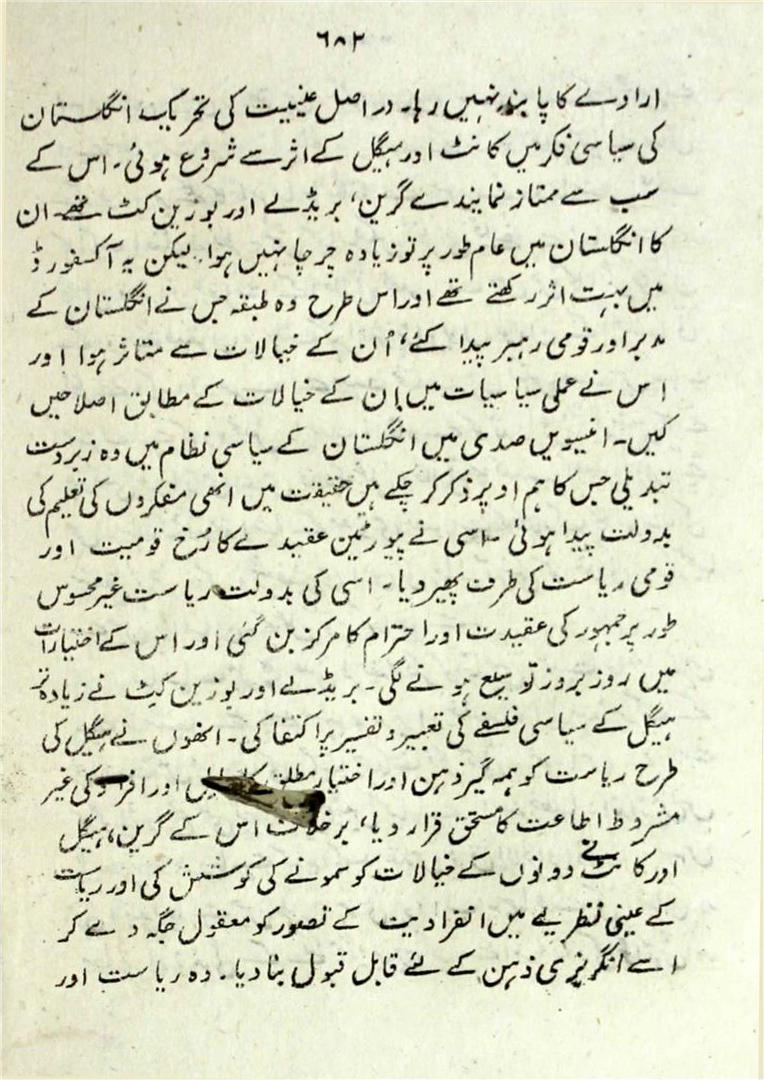 ۶۸۲
ارادے کا پابند نہیں رہا۔ در اصل عینیت کی تحریک انگلستان
کی سیاسی فکر میں کانٹ اور ہیگل کے اثر سے شروع ہوئی۔ اس کے
سب سے ممتاز نمایندے گرین، بریڈلے اور بوزین کٹ تھے۔ ان
کا انگلستان میں عام طور پر تو زیادہ چرچا نہیں ہوا۔ لیکن یہ آکسفورڈ
میں بہت اثر رکھتے تھے اور اس طرح وہ طبقہ جس نے انگلستان کے
مدبر اور قومی رہبر پیدا کئے، اُن کے خیالات سے متاثر ہوا اور
اس نے عملی سیاسیات میں ان کے خیالات کے مطابق اصلاحیں
کیں۔ انیسویں صدی میں انگلستان کے سیاسی نظام میں وہ زبردست
تبدیلی جس کا ہم اوپر ذکر کر چکے ہیں حقیقت میں انھی مفکروں کی تعلیم کی
بدولت پیدا ہوئی۔ اسی نے پیورٹین عقیدے کا رُخ قومیت اور
قومی ریاست کی طرف پھیر دیا۔ اسی کی بدولت ریاست غیر محسوس
طور پر جمہور کی عقیدت اور احترام کا مرکز بن گئی اور اس کے اختیارات
میں روز بروز توسیع ہونے لگی۔ بریڈلے اور بوزین کٹ نے زیادہ تر
ہیگل کے سیاسی فلسفے کی تعبیر و تفسیر پر اکتفا کی۔ انھوں نے ہیگل کی
طرح ریاست کو ہمہ گیر ذہن اور اختیار مطلق کا اور افراد کی غیر
مشروط اطاعت کا مستحق قرار دیا، برخلاف اس کے گرین، ہیگل
اور کانٹ نے دونوں کے خیالات کو سمونے کی کوشش کی اور ریاست
کے عینی نظریے میں انفرادیت کے تصور کو معقول جگہ دے کر
اسے انگریزی ذہن کے لئے قابل قبول بنا دیا۔ وہ ریاست اور